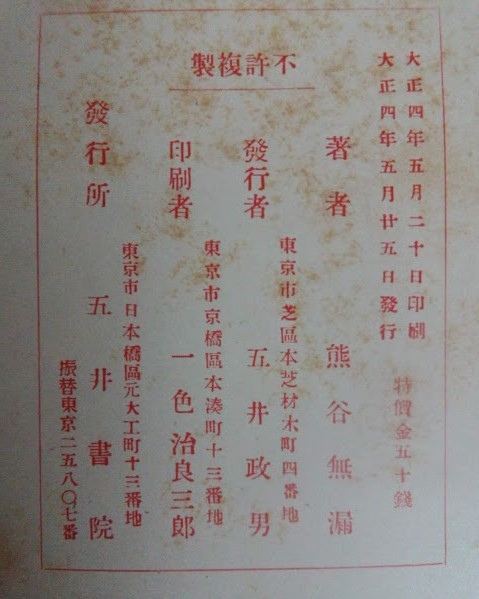 不許複製
大正四年五月二十日印刷
大正四年五月廿五日發行
特價金五十錢
著者 熊谷無漏
東京市芝區本芝材木町四番地
發行者 五井政男
東京市京橋區本湊町十三番地
印刷者 一色治良三郎
東京市日本橋區元大工町十三番地
發行所 五井書院
振替東京二五八〇七番